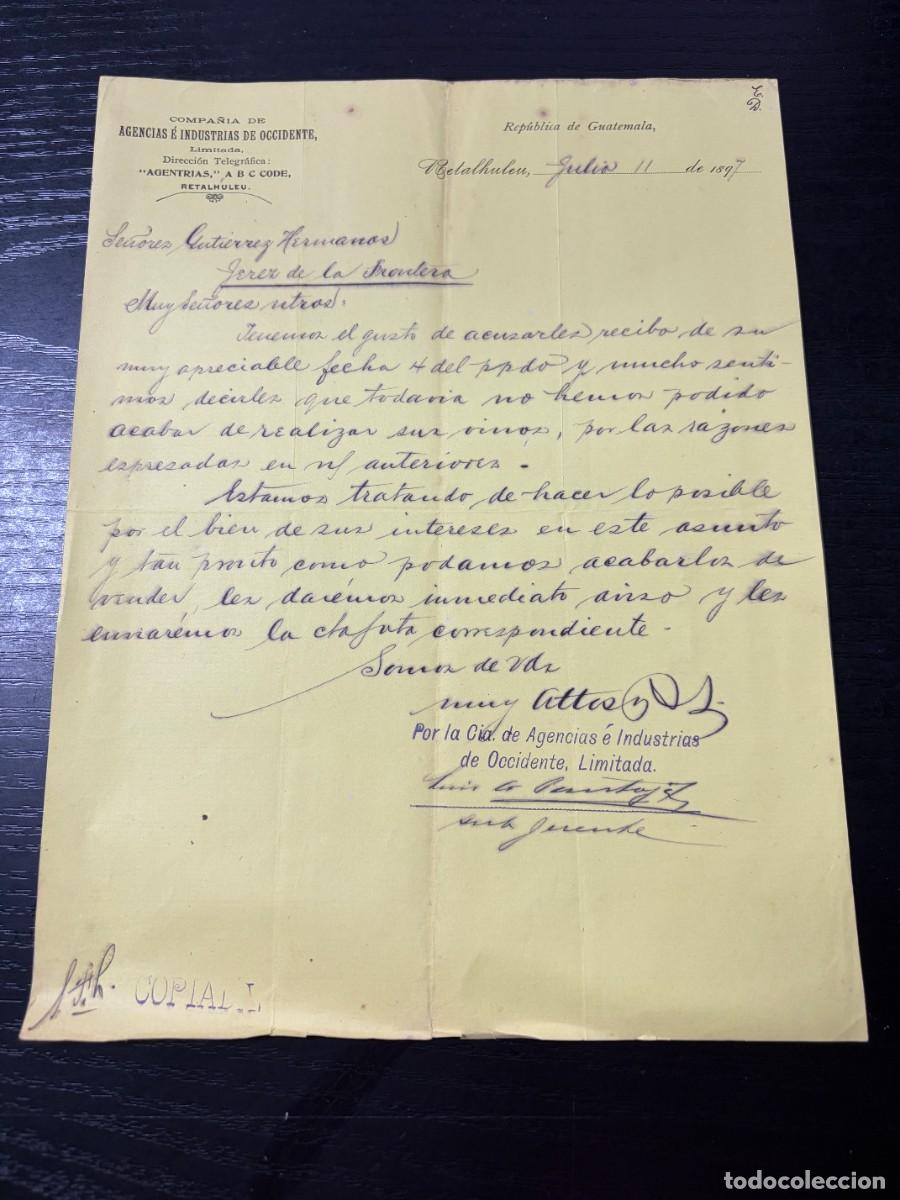 E.
D.
COMPAÑIA DE
AGENCIAS É INDUSTRIAS DE OCCIDENTE,
Limitada,
Dirección Telegráfica:
"AGENTRIAS," A B C CODE,
RETALHULEU.
República de Guatemala,
Retalhuleu, Julio 11 de 1897
Señores Gutierrez Hermanos
Jerez de la Frontera
Muy Señores ntros:
Tenemos el gusto de acusarles recibo de su
muy apreciable fecha 4 del ppdo y mucho senti-
mos decirles que todavia no hemos podido
acabar de realizar sus vinos, por las razones
espresadas en n/ anteriores.
Estamos tratando de hacer lo posible
por el bien de sus intereses en este asunto
y tan pronto como podamos acabarlos de
vender, les darémos inmediato aviso y les
enviarémos la cta futa correspondiente.
Somos de Vds
muy Attos y S. S.
Por la Cia. de Agencias é Industrias
de Occidente, Limitada.
Luis
sub Jerente
COPIAD
todocoleccion